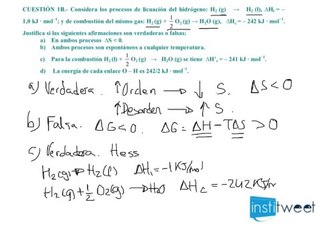 CUESTIÓN 1B.- Considera los procesos de licuación del hidrógeno: H₂ (g) → H₂ (l), ΔHᵢ = –
1,0 kJ · mol⁻¹; y de combustión del mismo gas: H₂ (g) + 1/2 O₂ (g) → H₂O (g), ΔHc = – 242 kJ · mol⁻¹.
Justifica si las siguientes afirmaciones son verdaderas o falsas:
a) En ambos procesos ΔS < 0.
b) Ambos procesos son espontáneos a cualquier temperatura.
c) Para la combustión H₂ (l) + 1/2 O₂ (g) → H₂O (g) se tiene ΔH'c = – 241 kJ · mol⁻¹.
d) La energía de cada enlace O – H es 242/2 kJ · mol⁻¹.
a) Verdadera. ↑Orden → ↓ S. ΔS<0
↑Desorden → ↑ S.
b) Falsa. ΔG<0 ΔG = ΔH - TΔS > 0
c) Verdadera. Hess
H₂(g) → H₂(l) ΔH₁ = -1 KJ/mol
H₂(g) + 1/2 O₂(g) → H₂O ΔHc = -242 KJ/
institweet